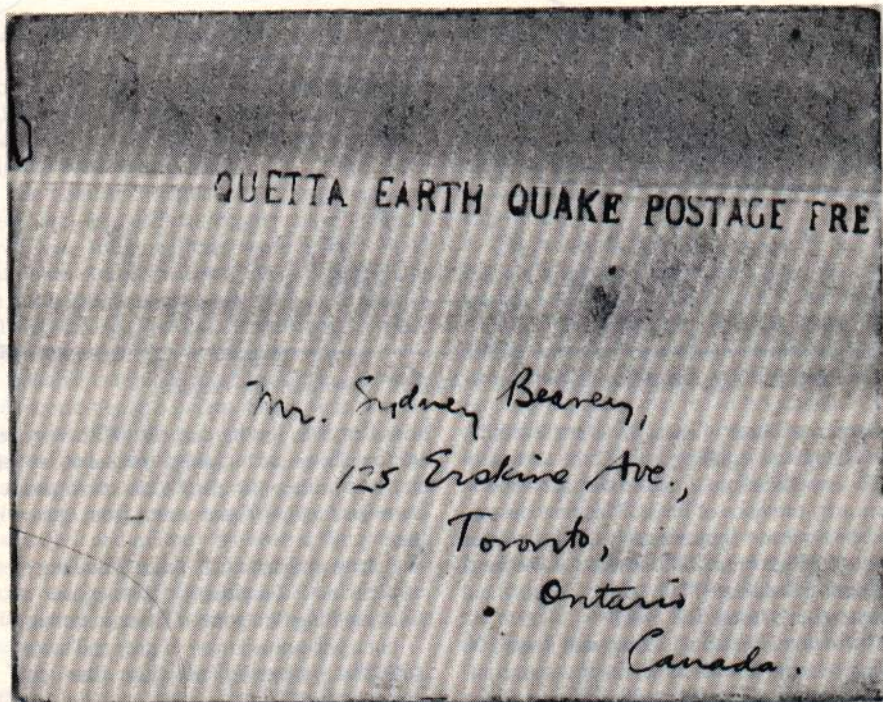 QUETTA EARTH QUAKE POSTAGE FRE
Mr. Sydney
125 Erskine Ave.,
Toronto,
Ontario
Canada.